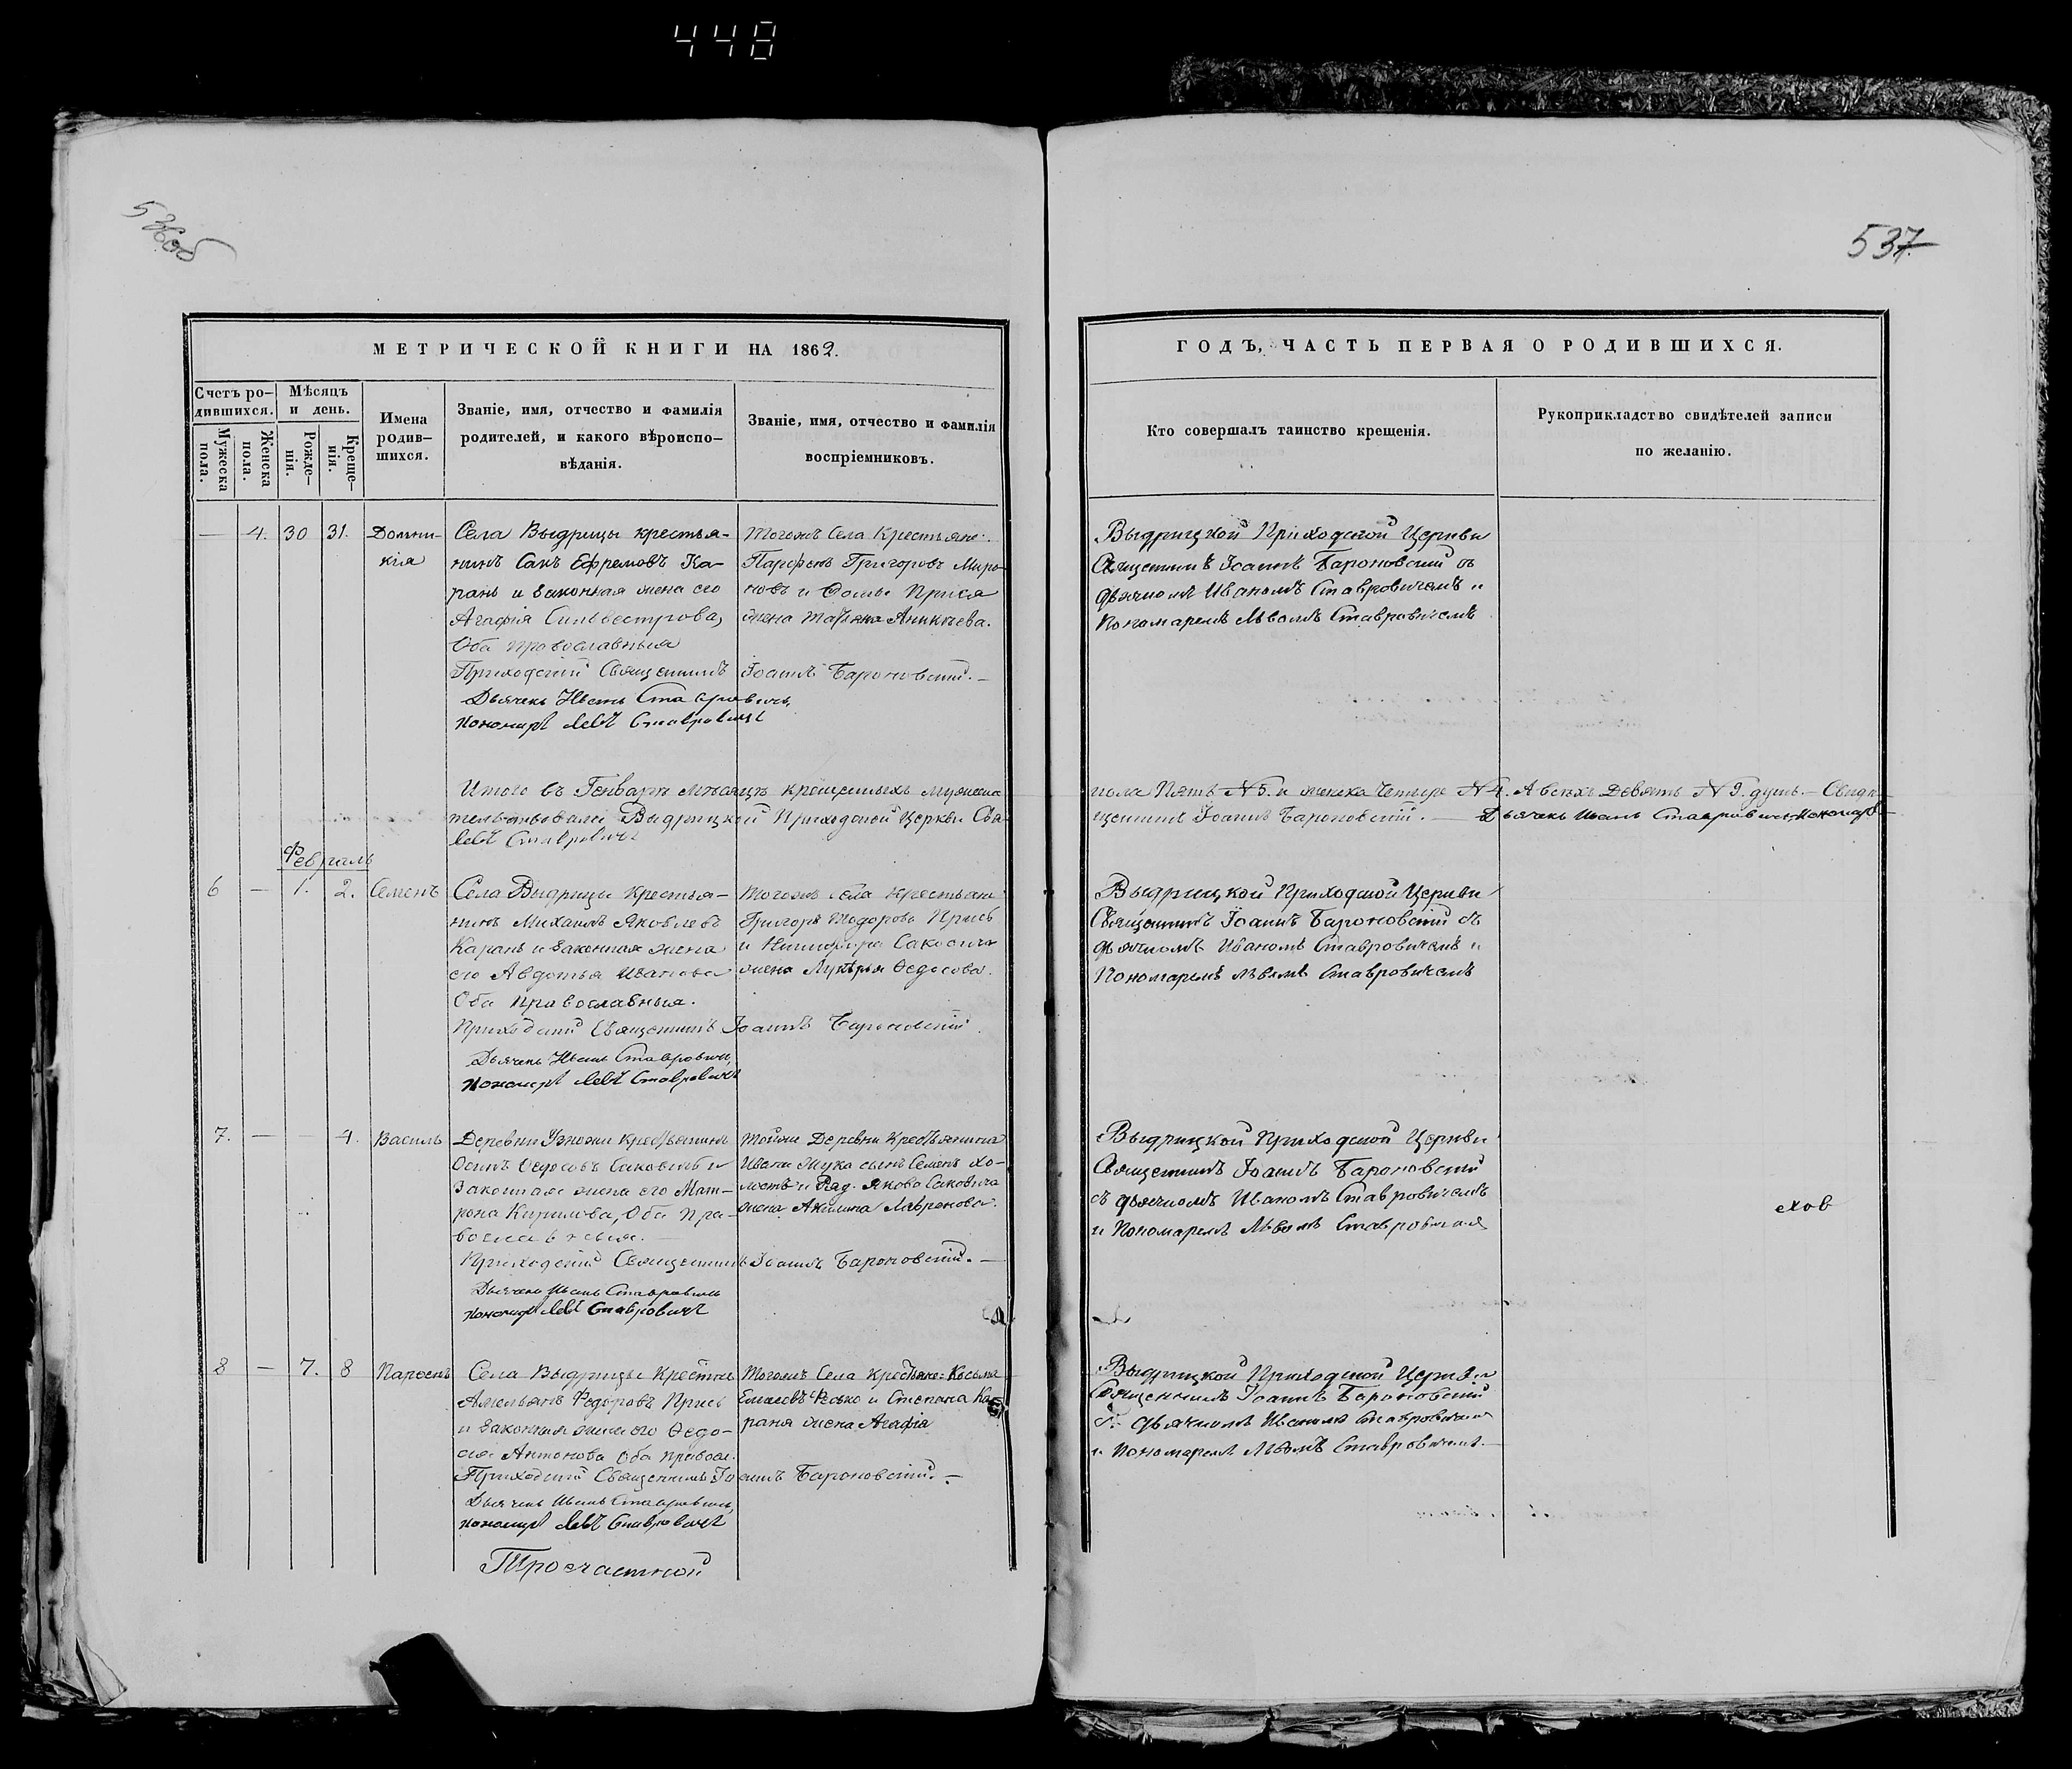 448
536об
537
МЕТРИЧЕСКОЙ КНИГИ НА 1862.
Счетъ родившихся.
Мужеска пола.
Женска пола.
Мѣсяцъ и день.
Рожденія.
Крещенія.
Имена родившихся.
Званіе, имя, отчество и фамилія
родителей, и какого вѣроиспо-
вѣданія.
Званіе, имя, отчество и фамилія
воспріемниковъ.
— 4. 30 31. Домни-
кія
Села Выдрицы крестья-
нинъ Сакъ Ефремовъ Ка-
рань и законная жена его
Агафія Сильвестрова,
Оба православныя
Тогожъ Села Крестьяне:
Парфенъ Григоровъ Миро-
новъ и Фомы Прися
жена Татьяна Аникѣева.
Приходскій Священникъ Іоаннъ Бароновскій. —
Дьячекъ Иванъ Ставровичъ,
Пономарь Левъ Ставровичъ
Итого въ Генварѣ мѣсяцѣ крещенныхъ мужеска
тельствовали Выдрицкой Приходской Церкви Свя-
Левъ Ставровичъ
Февраль
6 — 1. 2. Семенъ
Села Выдрицы Крестья-
нинъ Михаилъ Яковлевъ
Карань и законная жена
его Авдотья Иванова
Оба Православныя.
Тогожъ села крестьяне
Григорь Тодоровъ Прись
и Никифора Саковича
жена Лукерья Федосова.
Приходскій Священникъ Іоаннъ Бароновскій.
Дьячекъ Иванъ Ставровичъ,
Пономарь Левъ Ставровичъ
7. — — 4. Василь
Деревни Узножи Крестьянинъ
Осипъ Федосовъ Саковичъ и
Законная жена его Мат-
рона Кирилова, Оба Пра-
вославныя.
Тойже Деревни Крестьянина
Ивана Жука сынъ Семенъ хо-
лостъ и Ряд. Якова Саковича
жена Акилина Лавренова.
Приходскій Священникъ Іоаннъ Бароновскій. —
Дьячекъ Иванъ Ставровичъ
Пономарь Левъ Ставровичъ
8 — 7. 8
Села Выдрицы
Амельянъ Федоровъ Прись
и Законная жена его Федо-
сія Антонова Оба правосл.
Тогожъ Села Крестьяне: Косьма
и Степана Ка-
раня жена Агафія
Приходскій Священникъ Іоаннъ Бароновскій. —
Дьячекъ Иванъ Ставровичъ,
Пономарь Левъ Ставровичъ
ГОДЪ, ЧАСТЬ ПЕРВАЯ О РОДИВШИХСЯ.
Кто совершалъ таинство крещенія.
Рукоприкладство свидѣтелей записи
по желанію.
Выдрицкой Приходской Церкви
Священникъ Іоаннъ Бароновскій съ
дьячкомъ Иваномъ Ставровичемъ и
Пономаремъ Львомъ Ставровичемъ
пола Пять N 5. и женска Четыре N 4. А всехъ Девять N 9. душъ. — Свидѣ-
щенникъ Іоаннъ Бароновскій. — Дьячекъ Иванъ Ставровичъ, Пономарь
Выдрицкой Приходской Церкви
Священникъ Іоаннъ Бароновскій съ
дьячкомъ Иваномъ Ставровичемъ и
Пономаремъ Львомъ Ставровичемъ
Выдрицкой Приходской Церкви
Священникъ Іоаннъ Бароновскій
съ дьячкомъ Иваномъ Ставровичемъ
и Пономаремъ Львомъ Ставровичемъ
Выдрицкой Приходской Церкви
Священникъ Іоаннъ Бароновскій
съ Дьячкомъ Иваномъ Ставровичемъ
и Пономаремъ Львомъ Ставровичемъ. —